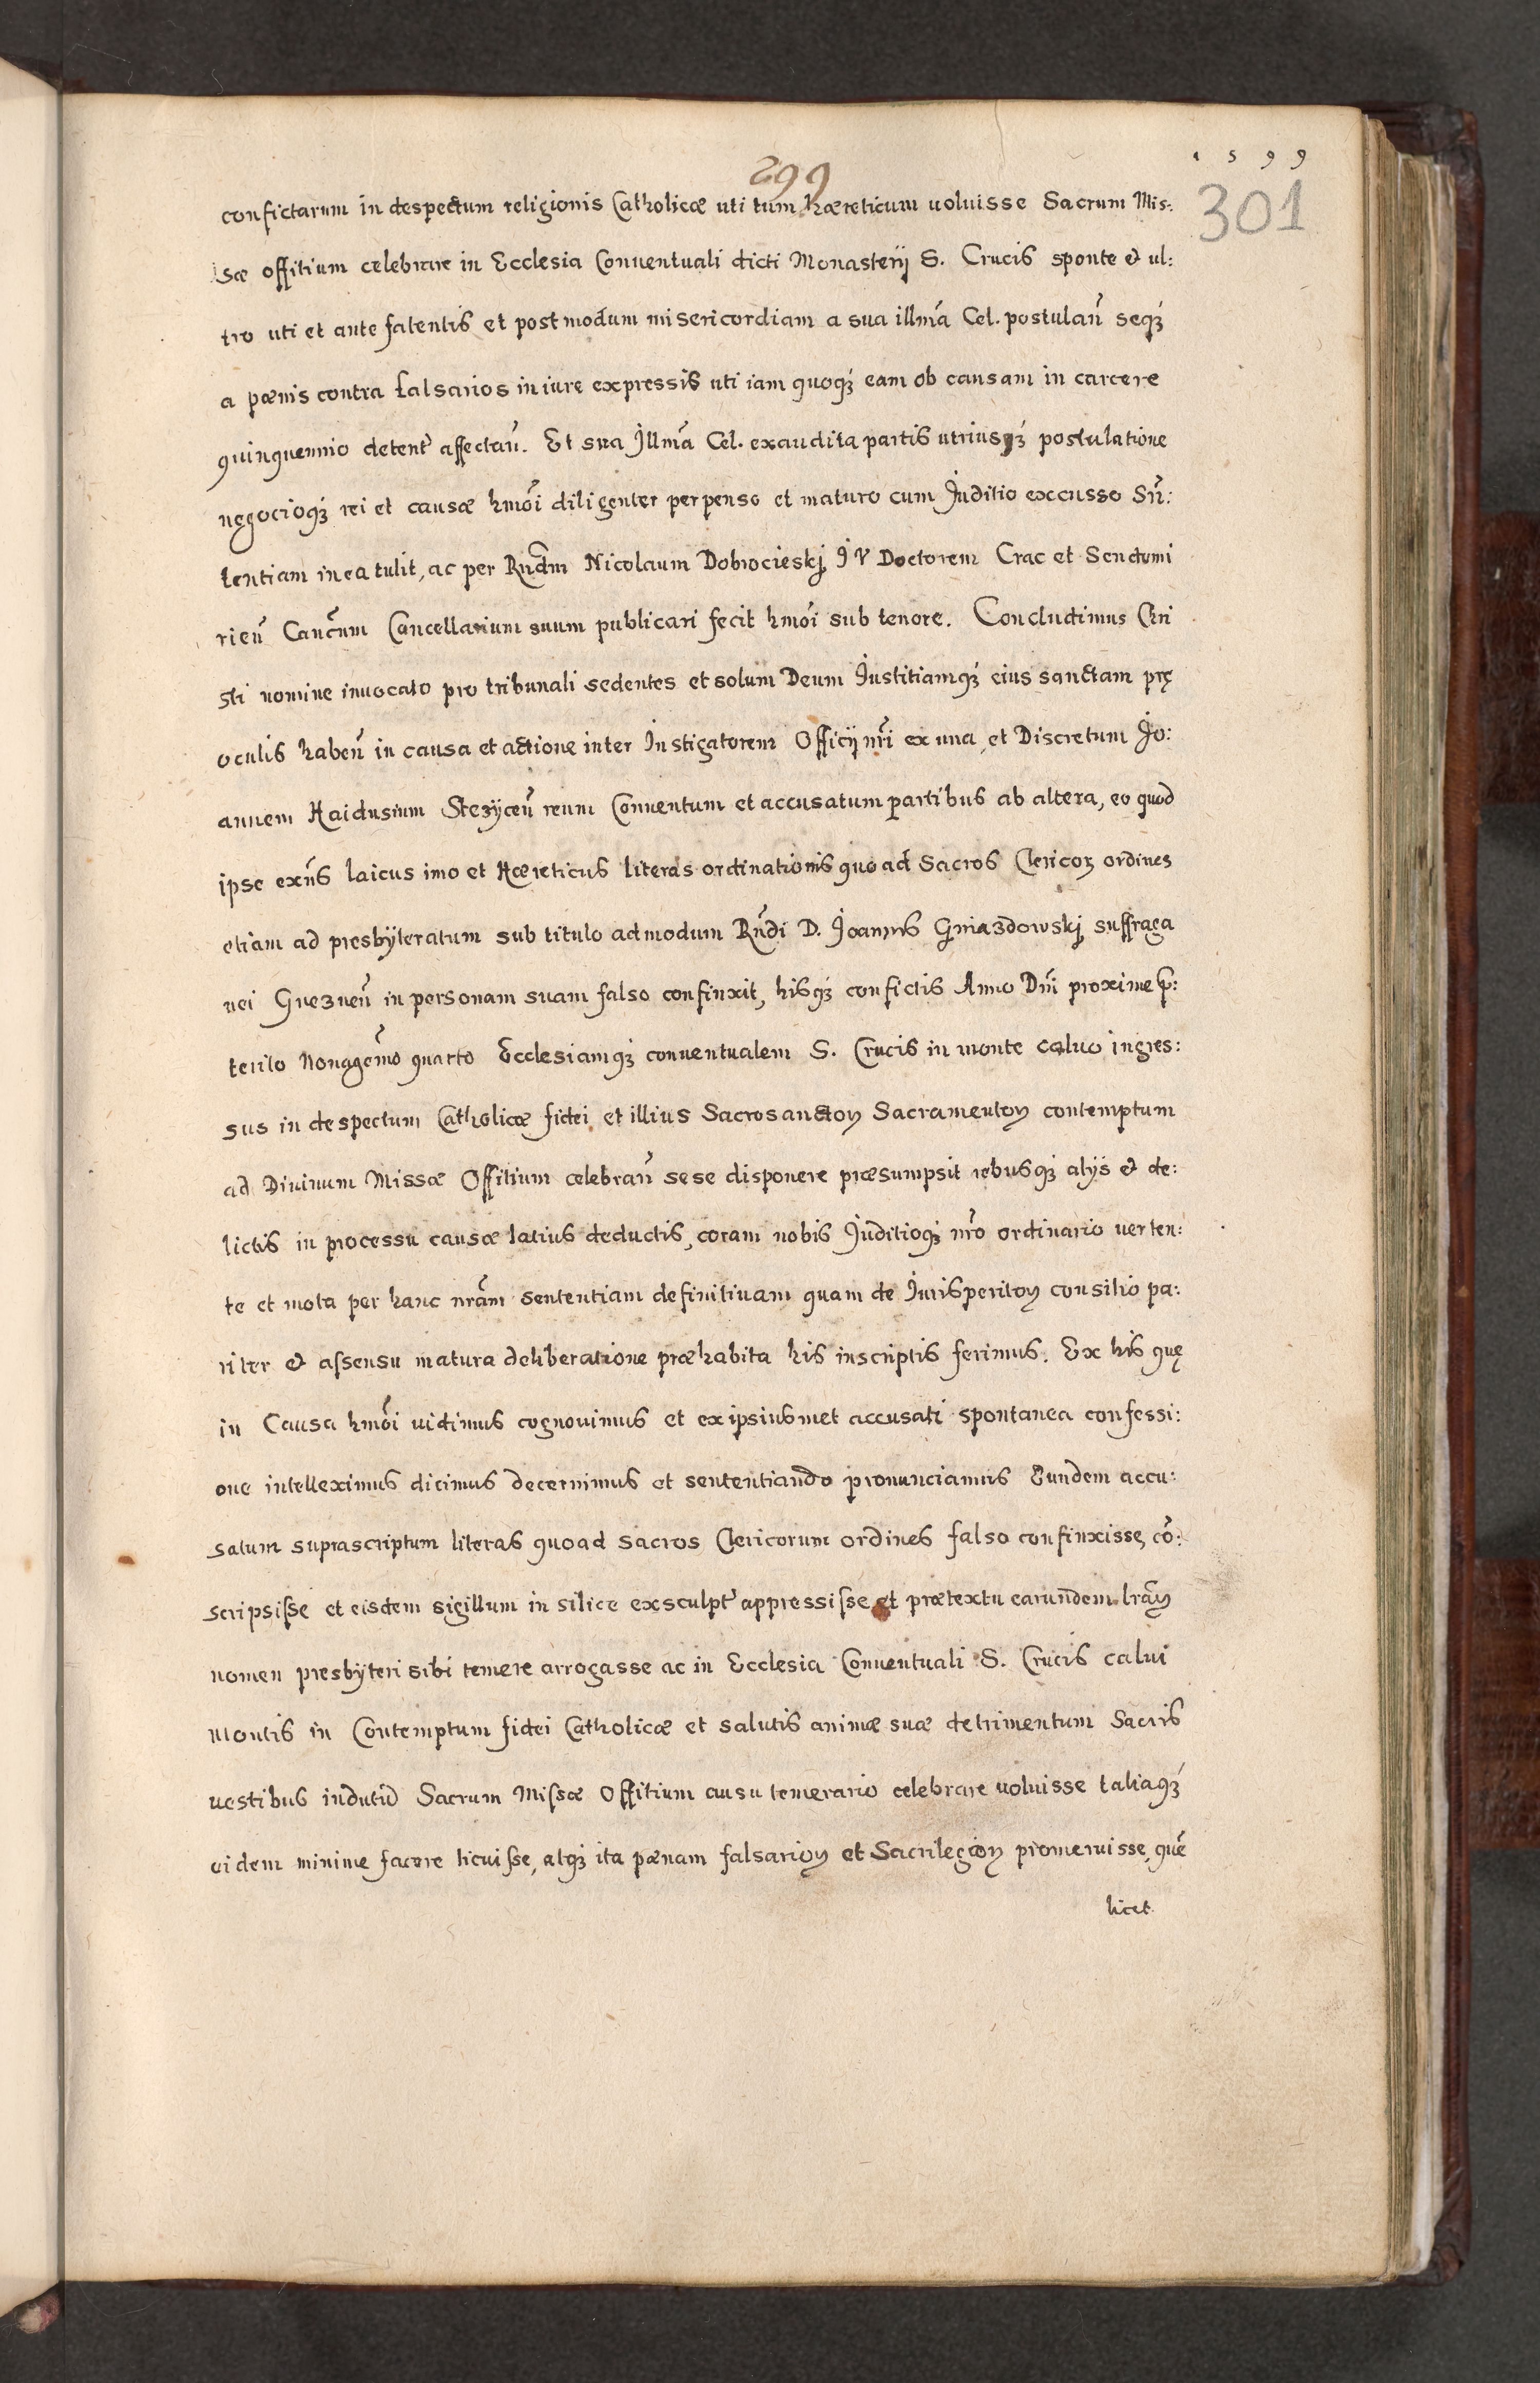 1599
299
301
confictarum in despectum religionis Catholicæ uti tum hæreticum uoluisse Sacrum Mis:
sæ offitium celebrare in Ecclesia Conuentuali dicti Monasterij S. Crucis sponte et ul:
tro uti et ante fatentis et postmodum misericordiam a sua illm̃a Cel. postulañ seqꝫ
a pœnis contra falsarios in iure expressis uti iam quoqꝫ eam ob causam in carcere
quinquennio detent᾽ affectañ. Et sua Illm̃a Cel. exaudita partis utriusqꝫ postulatione
negocioqꝫ rei et causæ hmõi diligenter perpenso et maturo cum Juditio excusso Señ:
tentiam in ea tulit, ac per Rndm̃ Nicolaum Dobrocieskj I V Doctorem Crac et Sendomi
rieñ Cancũm Cancellarium suum publicari fecit hmõi sub tenore. Concludimus Chri
sti nomine inuocato pro tribunali sedentes et solum Deum Justitiamqꝫ eius sanctam præ
oculis habeñ in causa et actione inter Instigatorem Officij nr̃i ex una, et Discretum Jo:
annem Haidusium Stezyceñ reum Conuentum et accusatum partibus ab altera, eo quod
ipse exñs laicus imo et Hæreticus literas ordinationis quo ad Sacros Clericoꝝ ordines
etiam ad presbyteratum sub titulo admodum Rñdi D. Joannis Gniazdowskj suffraga
nei Gnezneñ in personam suam falso confinxit, hisqꝫ confictis Anno Dñi proxime p̃:
terito Nonagem̃o quarto Ecclesiamqꝫ conuentualem S. Crucis in monte caluo ingres:
sus in despectum Catholicæ fidei et illius Sacrosanctoꝝ Sacramentoꝝ contemptum
ad Diuinum Missæ Offitium celebrañ sese disponere præsumpsit rebusqꝫ alijs et de:
lictis in processu causæ latius deductis, coram nobis Juditioqꝫ nr̃o ordinario uerten:
te et mota per hanc nr̃am sententiam definitiuam quam de Jurisperitoꝝ consilio pa:
riter et assensu matura deliberatione præhabita his inscriptis ferimus. Ex his quę
in Causa hmõi uidimus cognouimus et ex ipsiusmet accusati spontanea confessi:
one intelleximus dicimus decernimus et sententiando pronunciamus Eundem accu:
satum suprascriptum literas quoad sacros Clericorum ordines falso confinxisse, cõ:
scripsisse et eisdem sigillum in silice exsculpt᾽ appressisse et prætextu earundem lrãꝝ
nomen presbyteri sibi temere arrogasse ac in Ecclesia Conuentuali S. Crucis calui
montis in Contemptum fidei Catholicæ et salutis animæ suæ detrimentum Sacris
uestibus indutũ Sacrum Missæ Offitium ausu temerario celebrare uoluisse taliaqꝫ
eidem minime facere licuisse, atqꝫ ita pœnam falsarioꝝ et Sacrilegioꝝ promeruisse, quẽ
licet